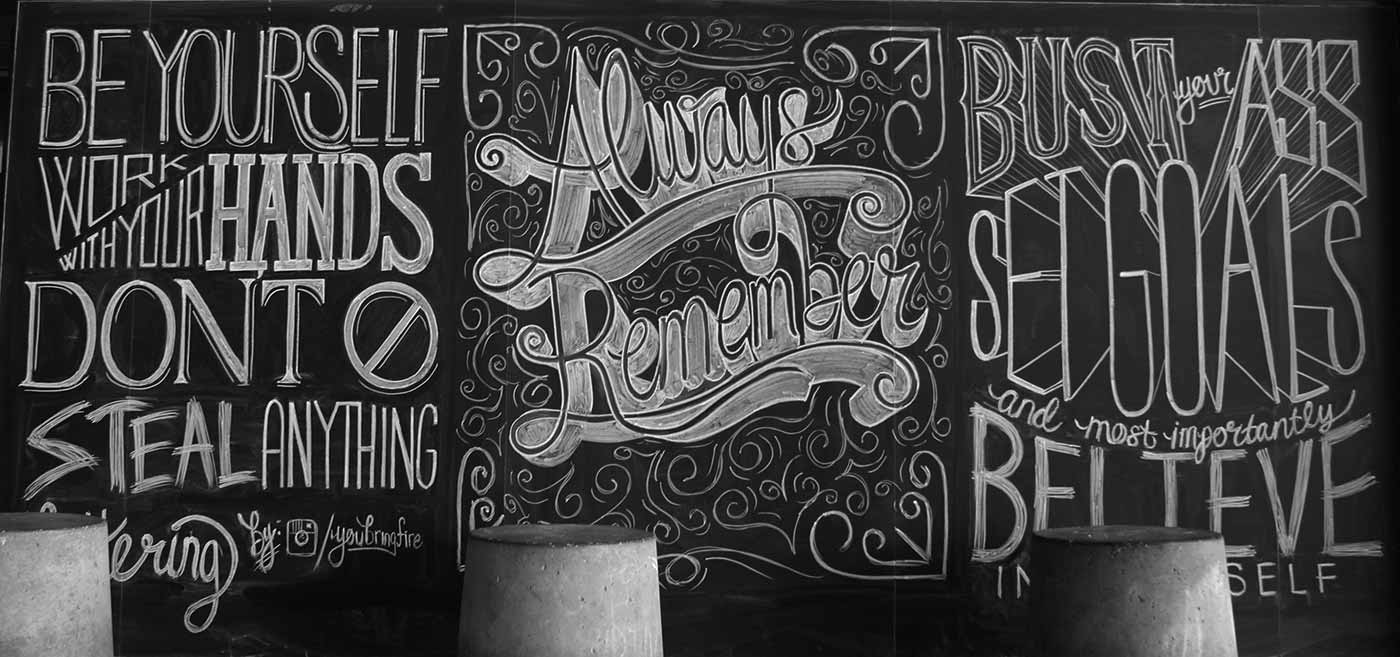 BE YOURSELF
WORK
WITH YOUR HANDS
DON'T
STEAL ANYTHING
by: /youbringfire
Always
Remember
BUST your ASS
SET GOALS
and most importantly
BELIEVE